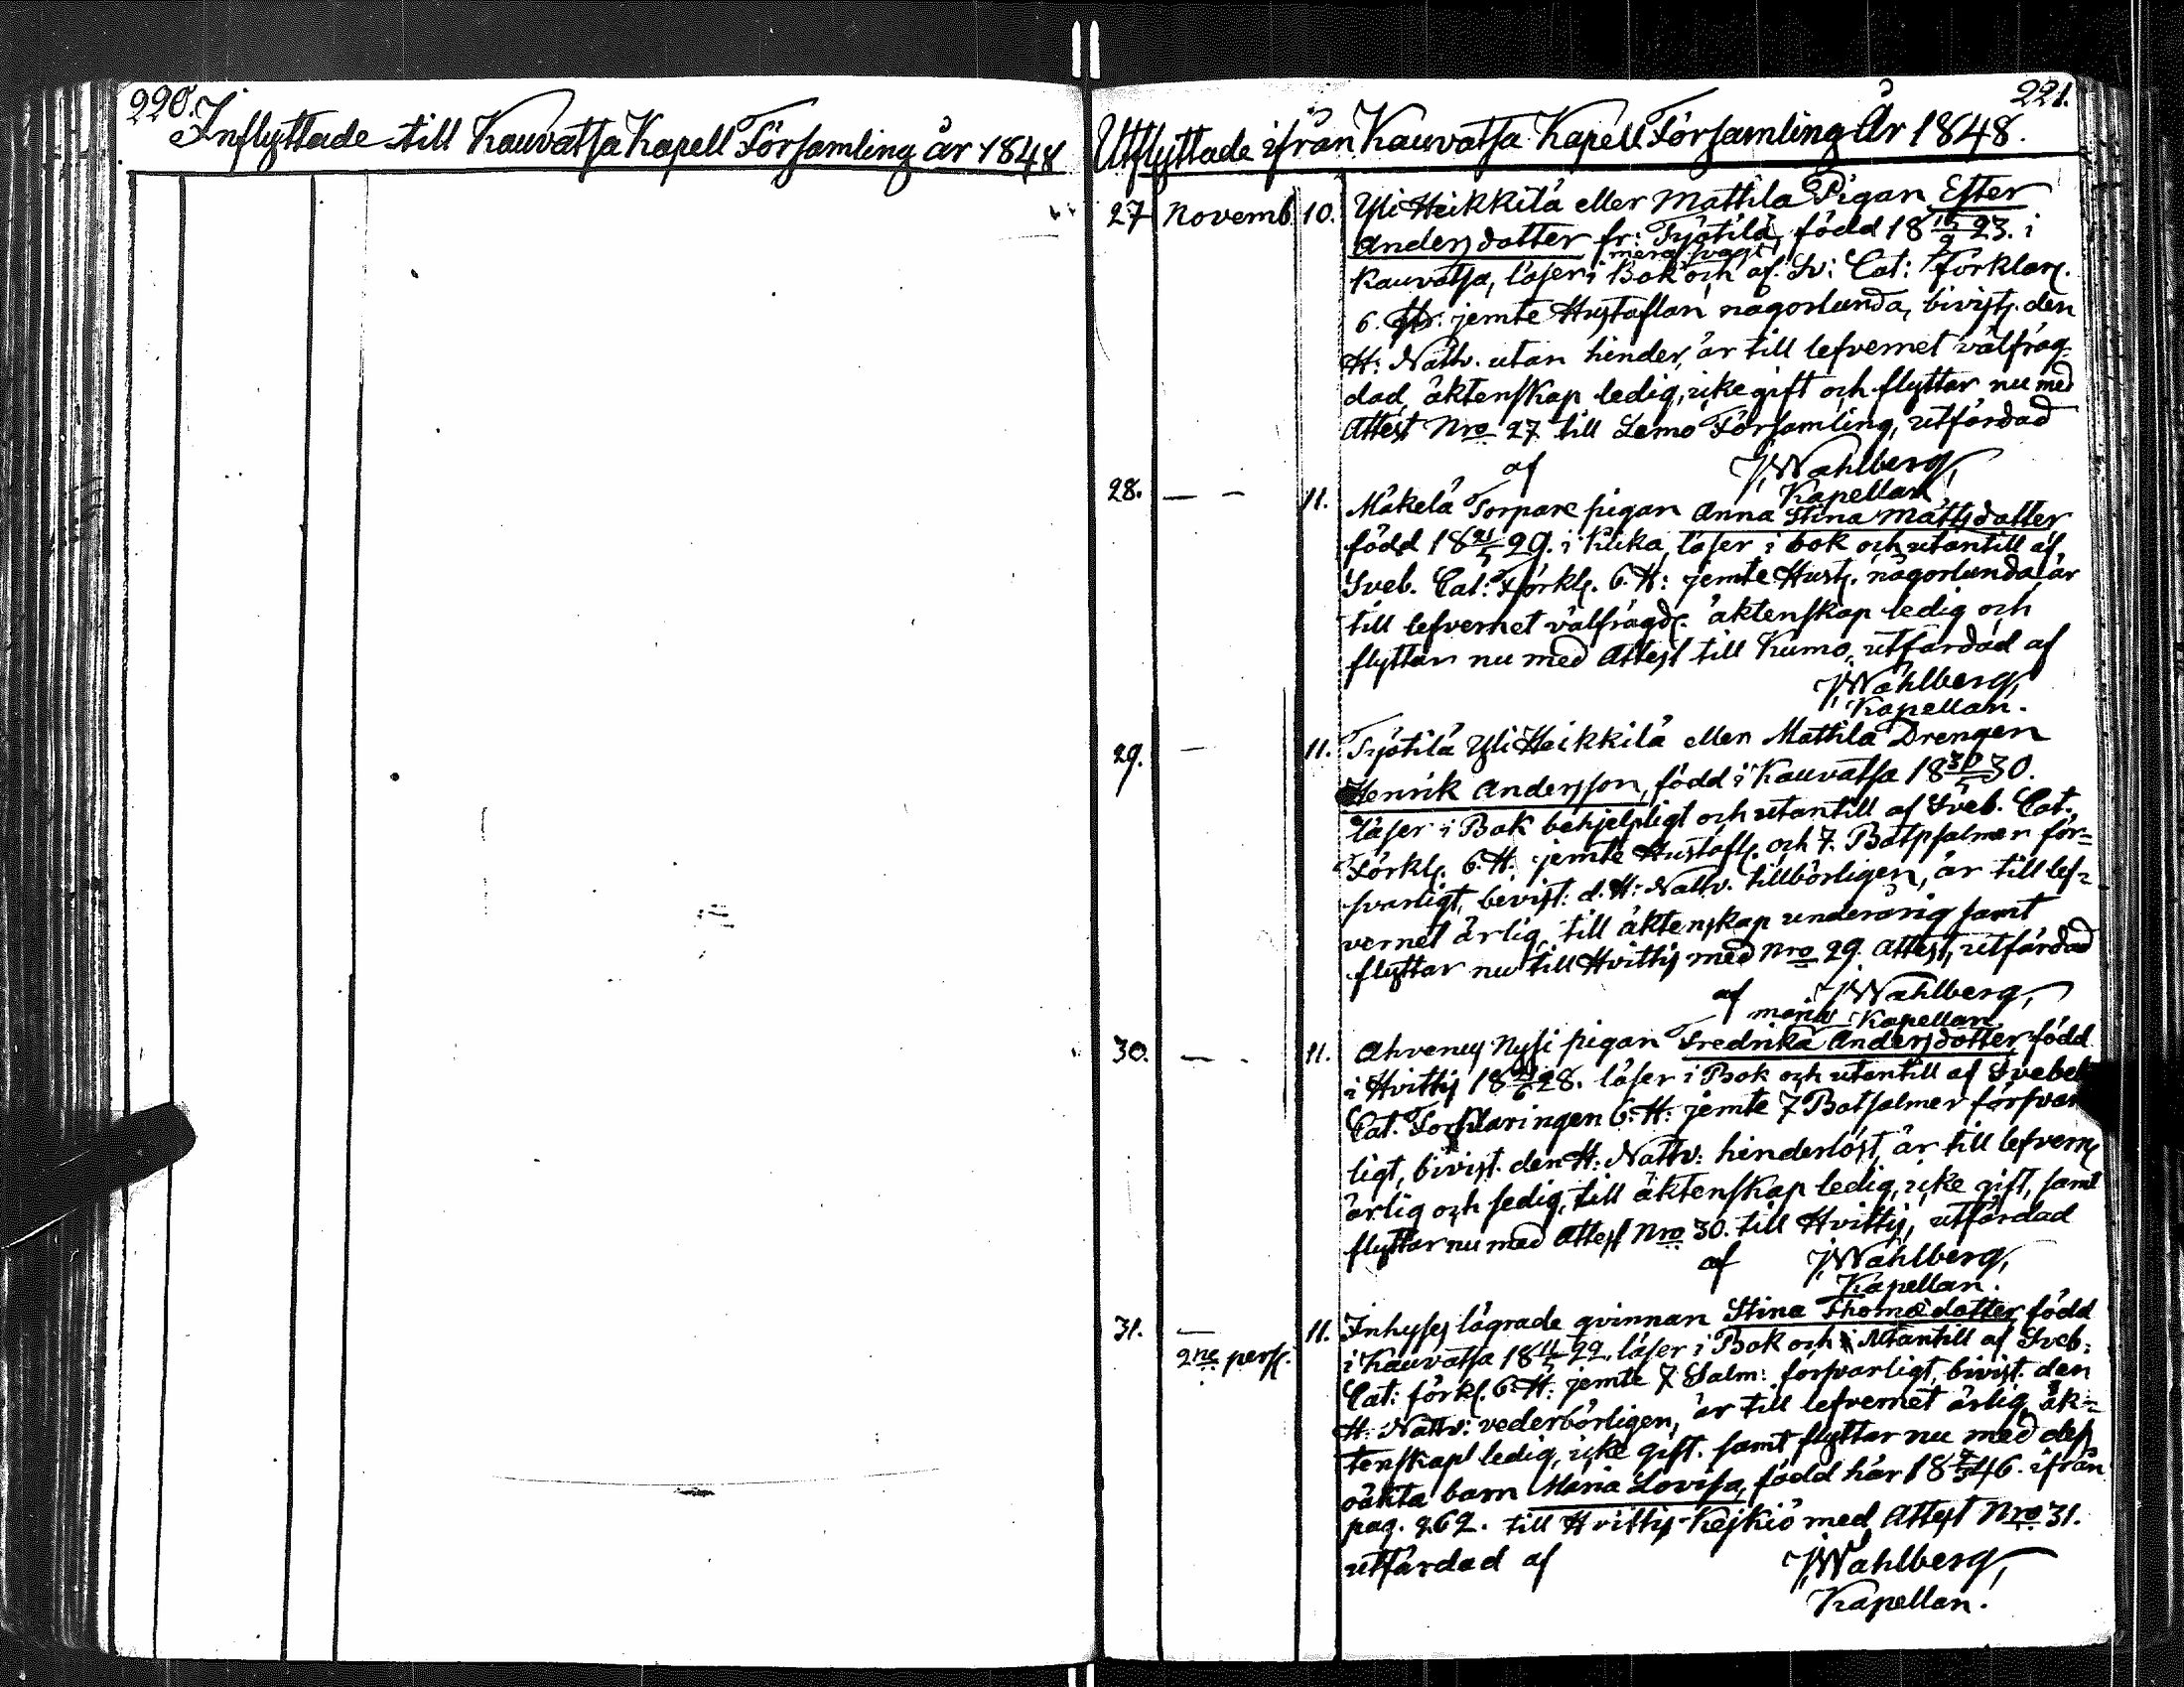 220.
Inflyttade till Kauvatsa Kapell Församling år 1848
221.
Utflyttade ifrån Kauvatsa Kapell Församling År 1848.
27 Novemb. 10. Yli Heikkilä eller Mattila Pigan Ester
Andersdotter fr: Työtilä, född 18 23. i
Kauvatsa, läser i Bok och af Sv: Cat: Förklar.
6. H: jemte Hustaflan någorlunda, bivist. den
H: Nattv. utan hinder, är till lefvernet välfräg-
dad, äktenskap ledig, icke gift och flyttar nu med
Attest Nro 27 till Lemo Församling, utfärdad
af JWahlberg,
Kapellan
28. — — 11. Mäkelä Torpare pigan Anna Stina Mattsdotter
född 18 21/5 29. i Kjuka, läser i bok och utantill af
Sveb. Cat: Förkl. 6. H: jemte Hust. någorlunda, är
till lefvernet välfrägd. äktenskap ledig och
flyttar nu med Attest till Kumo, utfärdad af
JWahlberg,
Kapellan.
29. — 11. Työtilä Yli Heikkilä eller Mattila Drengen
Henrik Andersson, född i Kauvatsa 18 30.
läser i Bok behjelpligt och utantill af Sveb. Cat.
Förkl. 6. H. jemte Hustafl. och 7. Botpsalmer för-
svarligt, bevist: d. H: Nattv. tillbörligen, är till lef-
vernet ärlig, till äktenskap underårig samt
flyttar nu till Hvittis med Nro 29. Attest, utfärdad
af JWahlberg,
Kapellan
30. — - 11. Ahvenus Nysi pigan Fredrika Maria Andersdotter född
i Hvittis 18 28. läser i Bok och utantill af Svebel
Cat. Förklaringen 6. H: jemte 7 Botsalmer försvar
ligt, bivist. den H: Nattv: hinderlöst, är till lefvern
ärlig och sedig, till äktenskap ledig, icke gift, samt
flyttar nu med Attest Nro 30. till Hvittis, utfärdad
af JWahlberg,
Kapellan.
31. — 11. Inhyses lägrade qvinnan Stina Thomasdotter född
2ne pers. i Kauvatsa 18 11/5 22, läser i Bok och utantill af Sveb:
Cat: förkl. 6. H: jemte 7 Salm: försvarligt, bivist. den
H: Nattv: vederbörligen, är till lefvernet ärlig, äk-
tenskap ledig, icke gift. samt flyttar nu med dess
oäkta barn Maria Lovisa, född här 18 46. ifrån
pag. 262. till Hvittis-Keikiö med Attest Nro 31.
utfärdad af JWahlberg,
Kapellan.